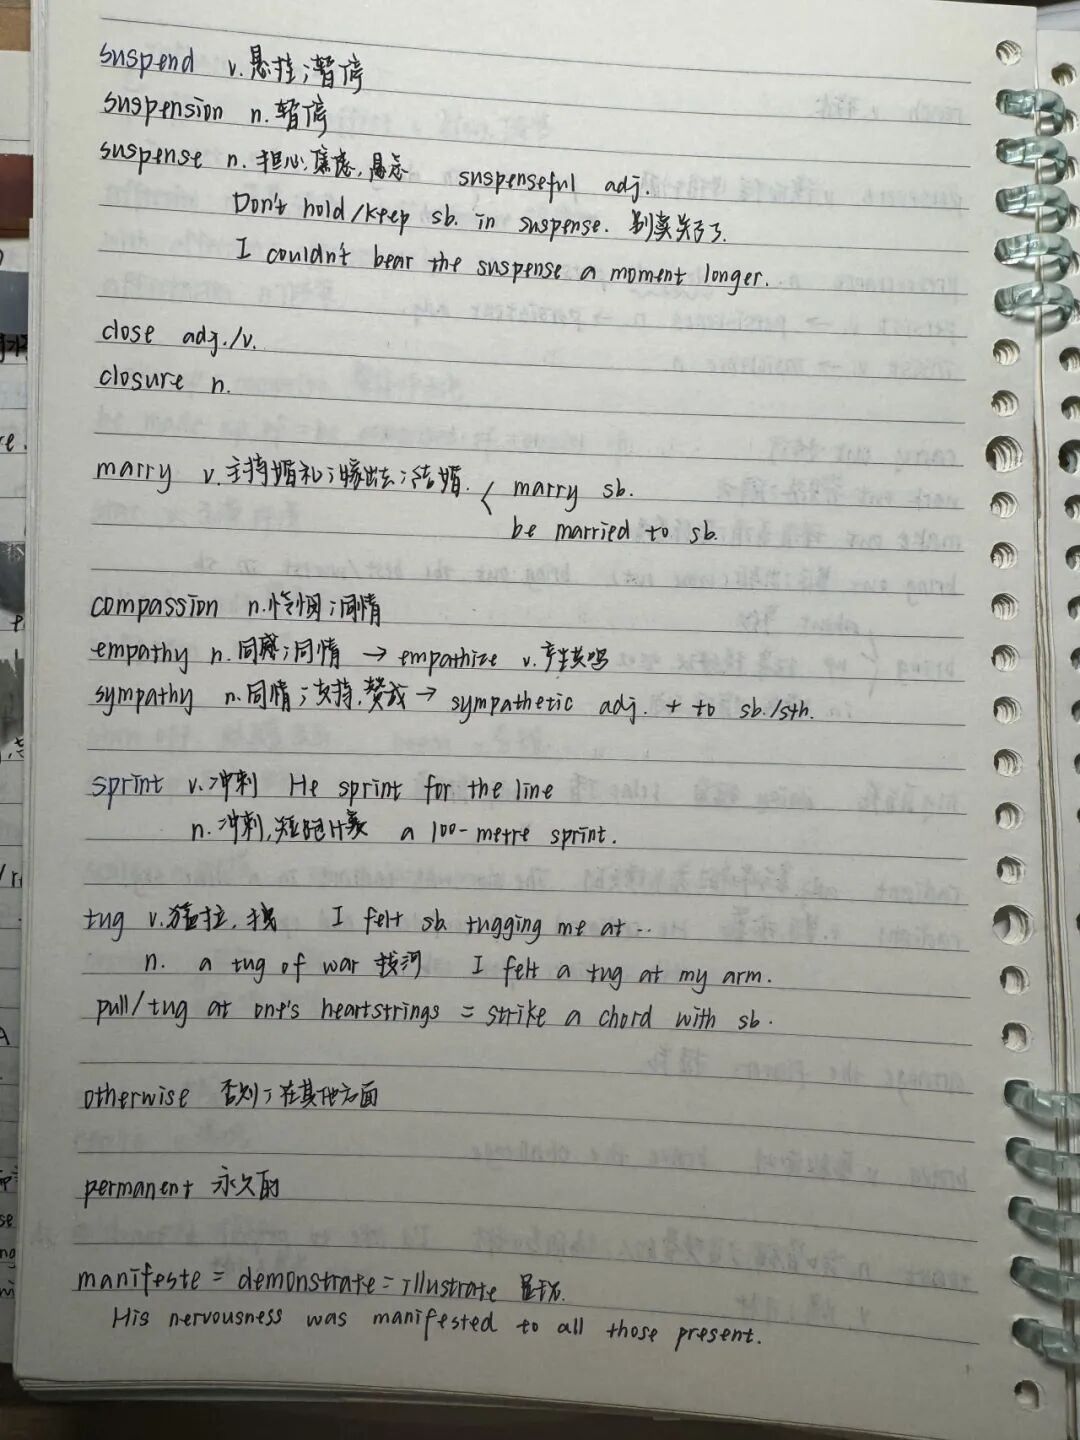 suspend v. 悬挂；暂停
suspension n. 暂停
suspense n. 担心，焦虑，悬念 suspenseful adj.
Don't hold/keep sb. in suspense. 别卖关子了.
I couldn't bear the suspense a moment longer.
close adj./v.
closure n.
marry v. 主持婚礼；嫁出去；结婚. < marry sb.
be married to sb.
compassion n. 怜悯；同情
empathy n. 同感；同情 → empathize v. 产生共鸣
sympathy n. 同情；支持，赞成 → sympathetic adj. + to sb./sth.
sprint v. 冲刺 He sprint for the line
n. 冲刺，短跑比赛 a 100-metre sprint.
tug v. 猛拉，拽 I felt sb. tugging me at ..
n. a tug of war 拔河 I felt a tug at my arm.
pull/tug at one's heartstrings = strike a chord with sb.
otherwise 否则；在其他方面
permanent 永久的
manifeste = demonstrate = illustrate 显现.
His nervousness was manifested to all those present.